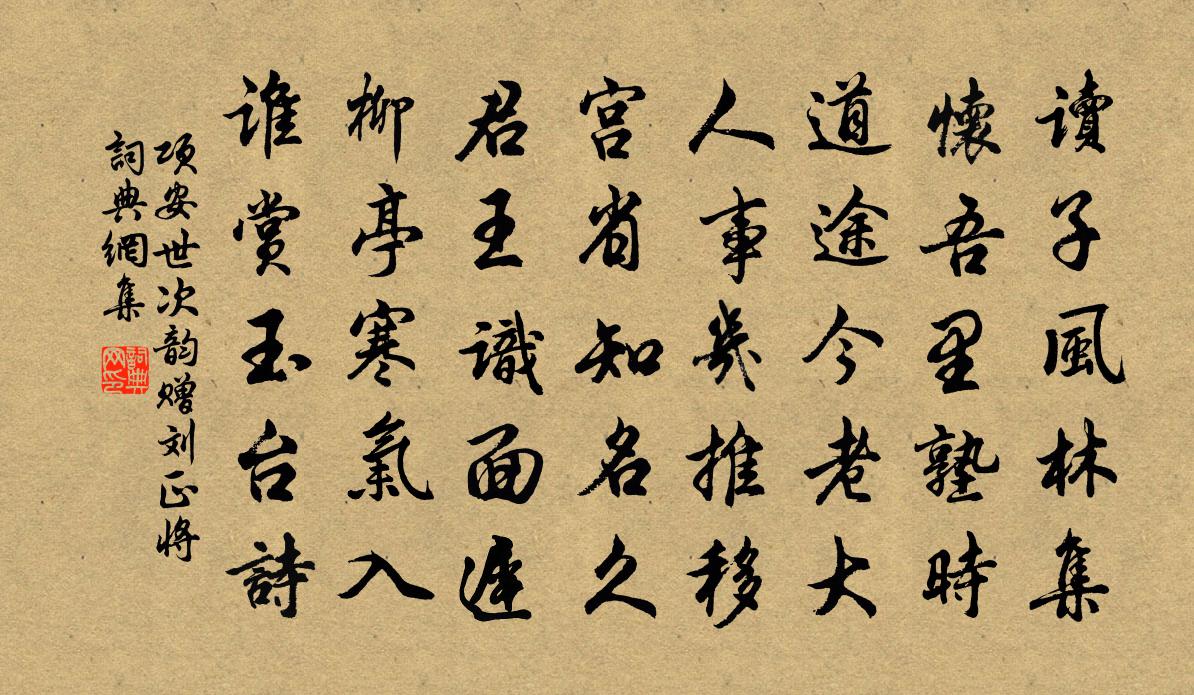 讀子風林集
懷吾里塾時
道途今老大
人事幾推移
宮省知名久
君王識面遲
柳亭寒氣入
誰賞玉台詩
项安世次韵赠刘正将
詞典網集
詞典网印